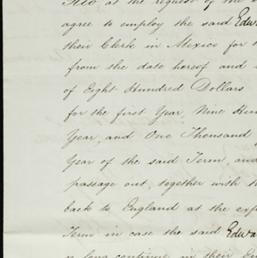 at the request of the
agree to employ the said Edwa
their Clerk in Mexico for
from the date hereof and
of Eight Hundred Dollars
for the first Year, Nine Hun
Year, and One Thousand
Year of the said Term, and
passage out, together with th
back to England at the exp
Term in case the said Edwa
so long continue in their